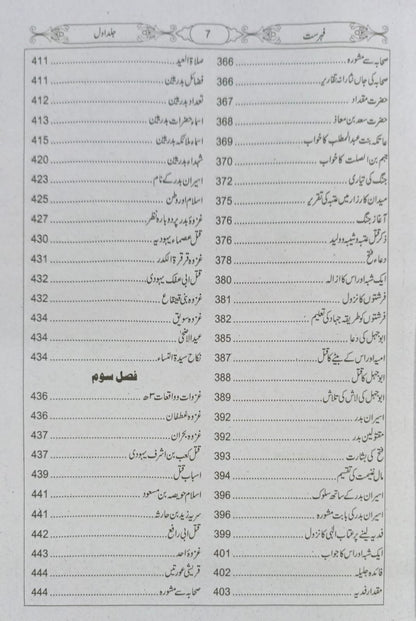 فہرست
7
جلد اول
صحابہ سے مشورہ 366
صحابہ کی جاں نثارانہ تقاریر 366
حضرت مقداد 367
حضرت سعد بن معاذ 368
عاتکہ بنت عبدالمطلب کا خواب 369
جہیم بن الصلت کا خواب 370
جنگ کی تیاری 372
میدان کارزار میں عتبہ کی تقریر 375
آغاز جنگ 376
ذکر قتل عتبہ و شیبہ و ولید 376
دعاء فتح 378
ایک شبہ اور اس کا ازالہ 380
فرشتوں کا نزول 381
فرشتوں کو طریقہ جہاد کی تعلیم 382
ابوجہل کی دعا 385
امیہ اور اس کے بیٹے کا قتل 387
ابوجہل کا قتل 388
ابوجہل کی لاش کی تلاش 389
اسیران بدر 392
مقتولین بدر 392
فتح کی بشارت 393
مال غنیمت کی تقسیم 394
اسیران بدر کے ساتھ سلوک 396
اسیران بدر کی بابت مشورہ 396
فدیہ لینے پر عتاب الٰہی کا نزول 399
ایک شبہ اور اس کا جواب 401
فائدہ جلیلہ 402
مقدار فدیہ 403
صلاۃ العید 411
فضائل بدریین 411
تعداد بدریین 412
اسماء حضرات بدریین 413
اسماء ملائکہ بدریین 415
شہداء بدریین 420
اسیران بدر کے نام 423
اسلام اور وطن 425
غزوۂ بدر پر دوبارہ نظر 427
قتل عصماء یہودیہ 430
غزوہ قرقرۃ الکدر 431
قتل ابی عفک یہودی 432
غزوہ بنی قینقاع 432
غزوہ سویق 434
عید الاضحیٰ 434
نکاح سیدۃ النساء 434
فصل سوم
غزوات و واقعات ۳ھ 436
غزوہ غطفان 436
غزوہ بحران 437
قتل کعب بن اشرف یہودی 437
اسباب قتل 439
اسلام حویصہ بن مسعود 441
سریہ زید بن حارثہ 441
قتل ابی رافع 442
غزوۂ احد 443
قریشی عورتیں 444
صحابہ سے مشورہ 444